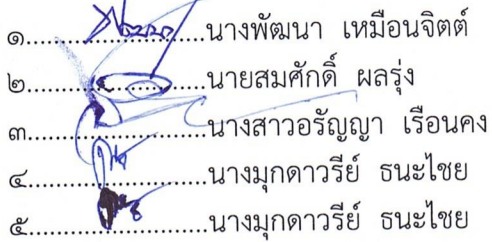 ๑..............................นางพัฒนา เหมือนจิตต์
๒..............................นายสมศักดิ์ ผลรุ่ง
๓..............................นางสาวอรัญญา เรือนคง
๔..............................นางมุกดาวรีย์ ธนะไชย
๕..............................นางมุกดาวรีย์ ธนะไชย